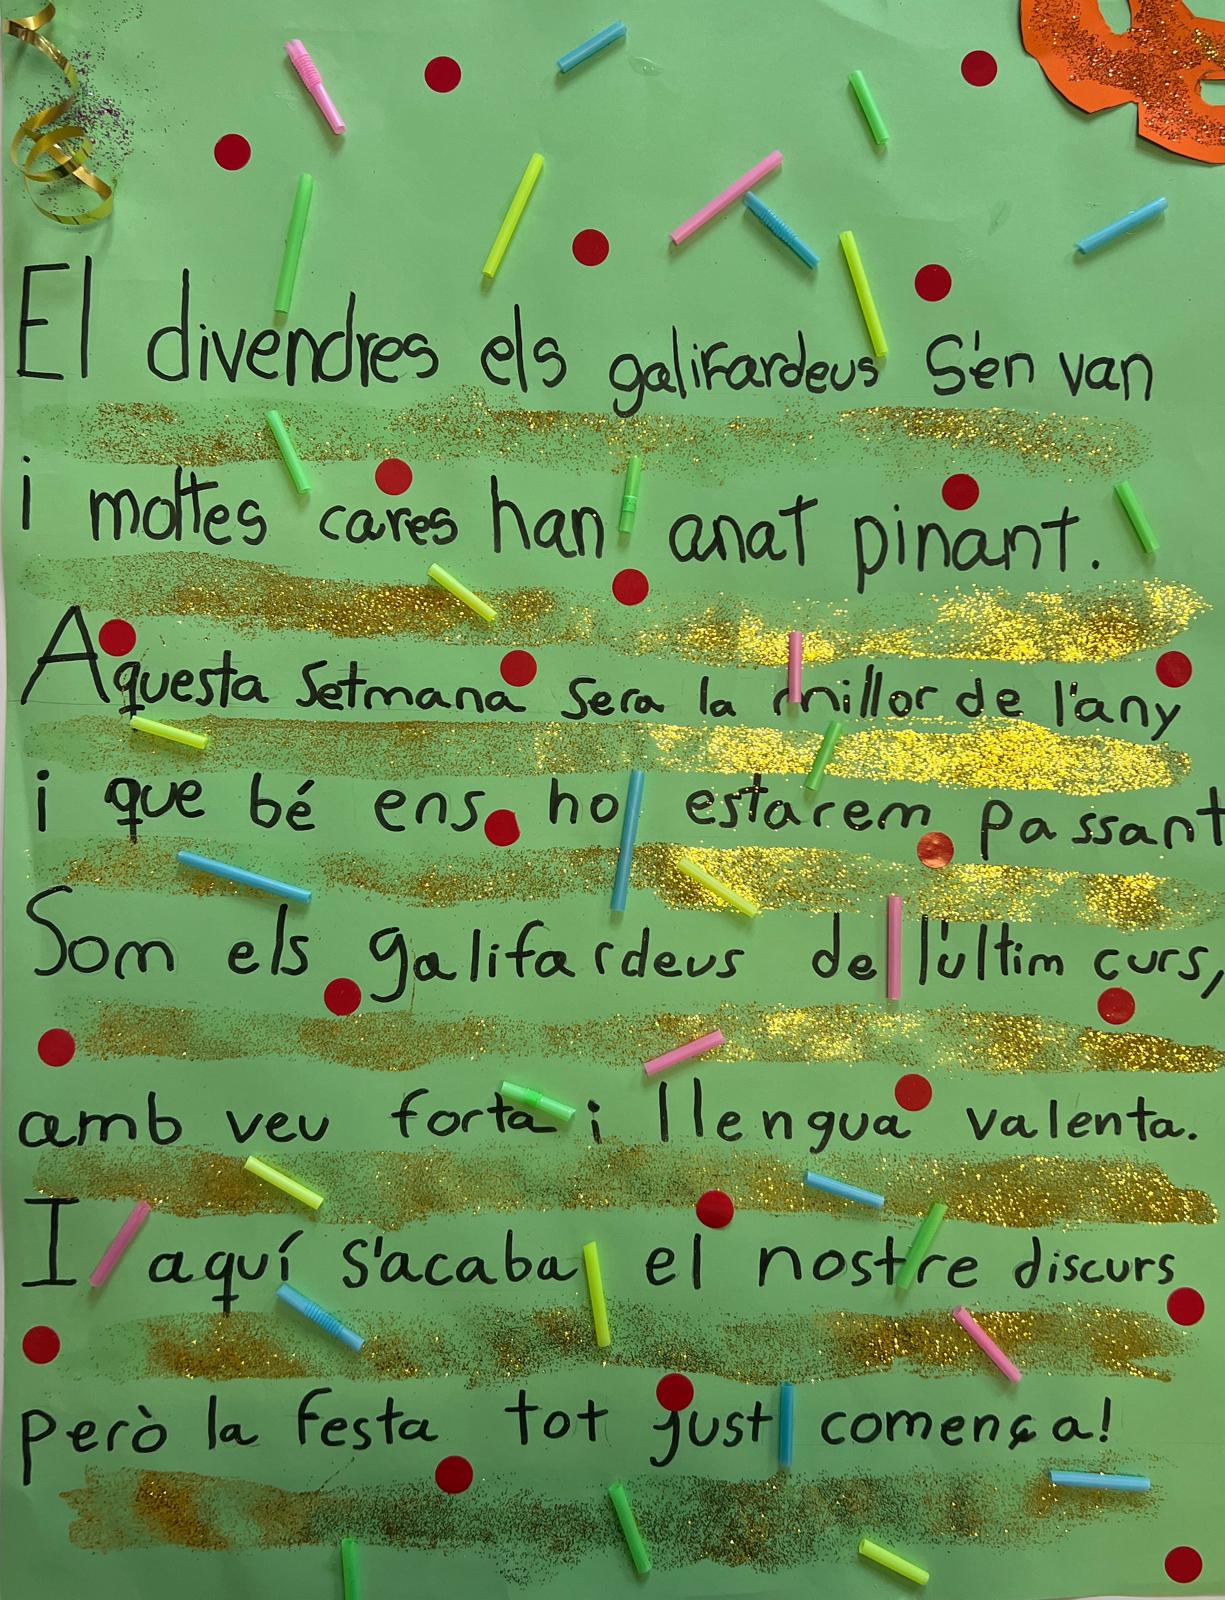 El divendres els galifardeus s'en van
i moltes cares han anat pinant.
Aquesta setmana sera la millor de l'any
i que bé ens ho estarem passant
Som els galifardeus de l'últim curs,
amb veu forta i llengua valenta.
I aquí s'acaba el nostre discurs
però la festa tot just comença!